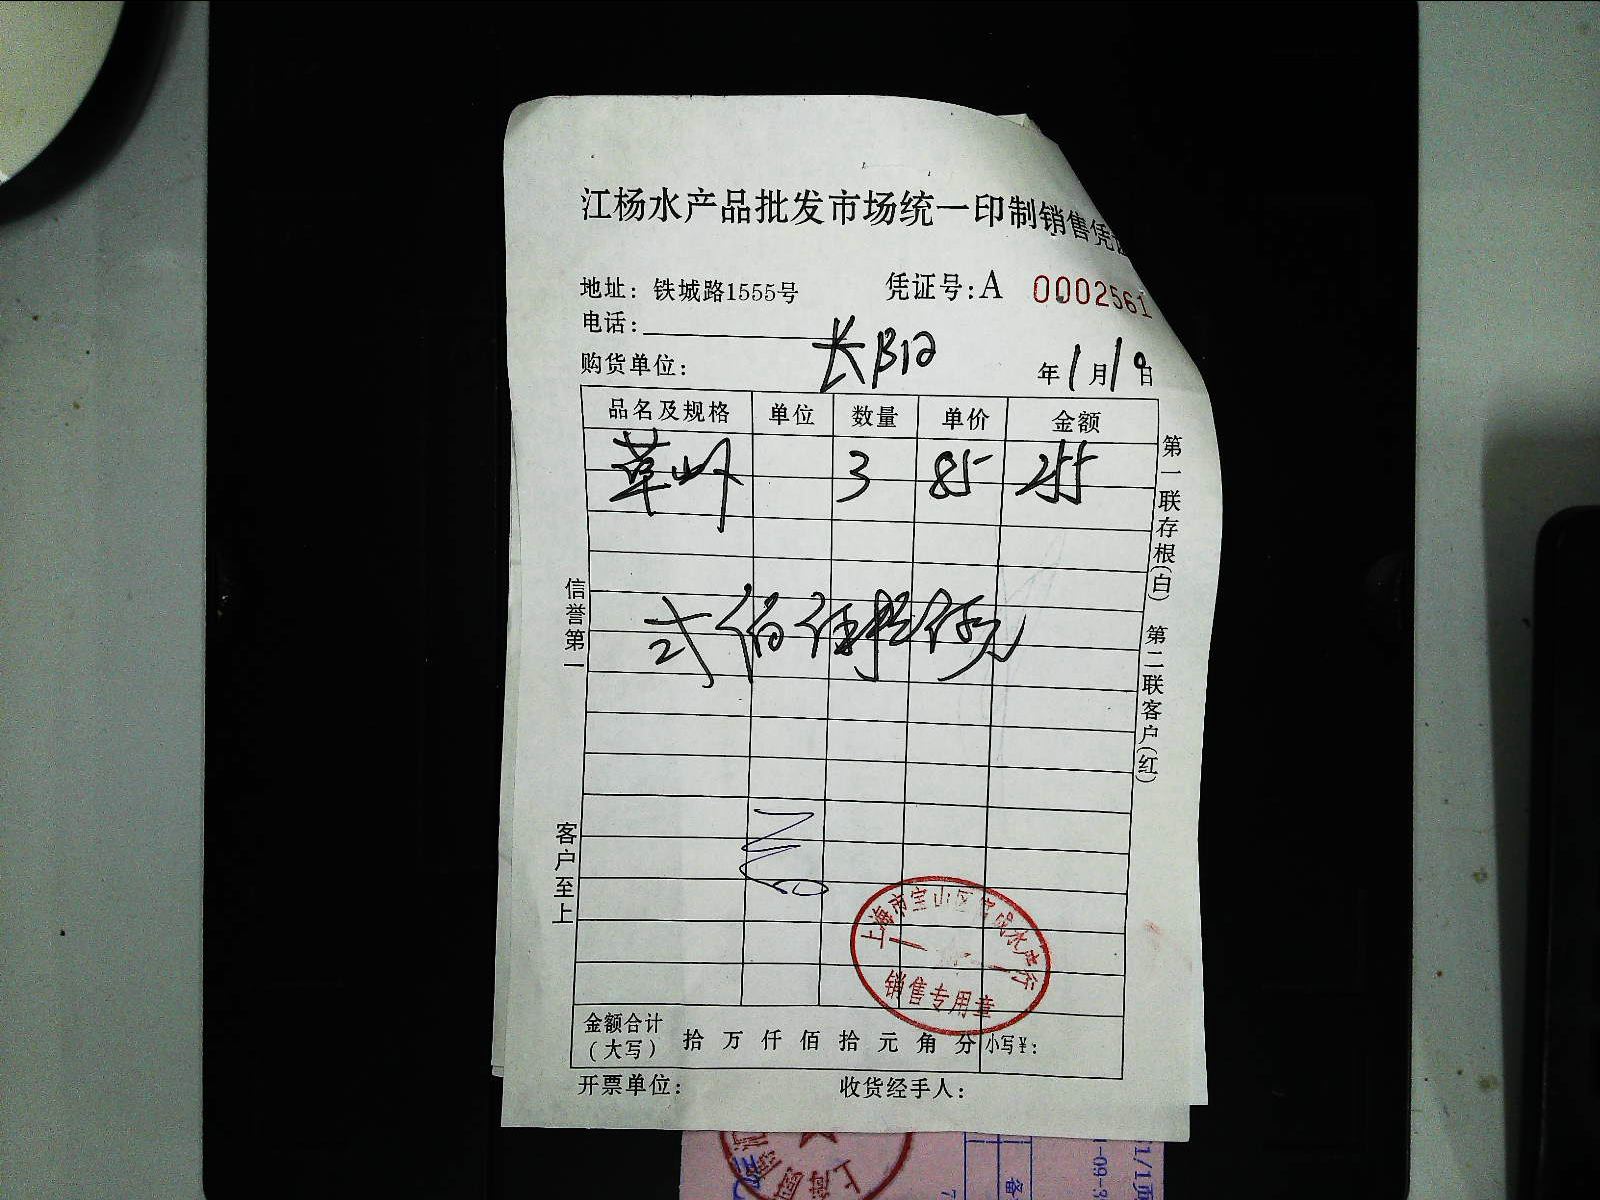 江杨水产品批发市场统一印制销售凭证
地址：铁城路1555号 凭证号：A 0002561
电话：
购货单位： 年1月10日
品名及规格 单位 数量 单价 金额
草虾 3 85 255
弍佰伍拾伍元
第一联存根（白） 第二联客户（红）
信誉第一
客户至上
上海市宝山区 水产行
销售专用章
金额合计（大写） 拾 万 仟 佰 拾 元 角 分 小写¥：
开票单位： 收货经手人：